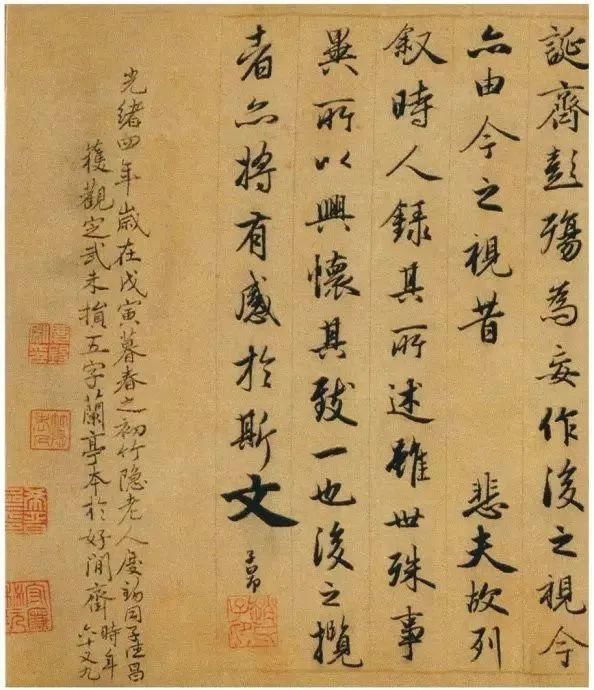 誕齊彭殤為妄作後之視今
亦由今之視昔 悲夫故列
叙時人錄其所述雖世殊事
異所以興懷其致一也後之攬
者亦將有感於斯文
子昂
趙氏子昂
光緒四年歲在戊寅暮春之初竹隱老人慶同子昌
獲觀定武未損五字蘭亭本於好閒齋時年
六十又九